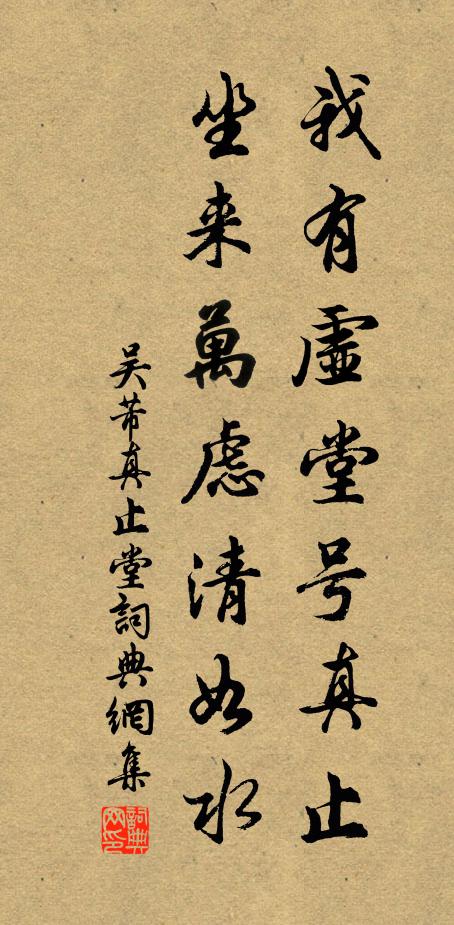 我有虛堂号真止
坐来萬慮清如水
吴芾真止堂詞典網集
詞典网印